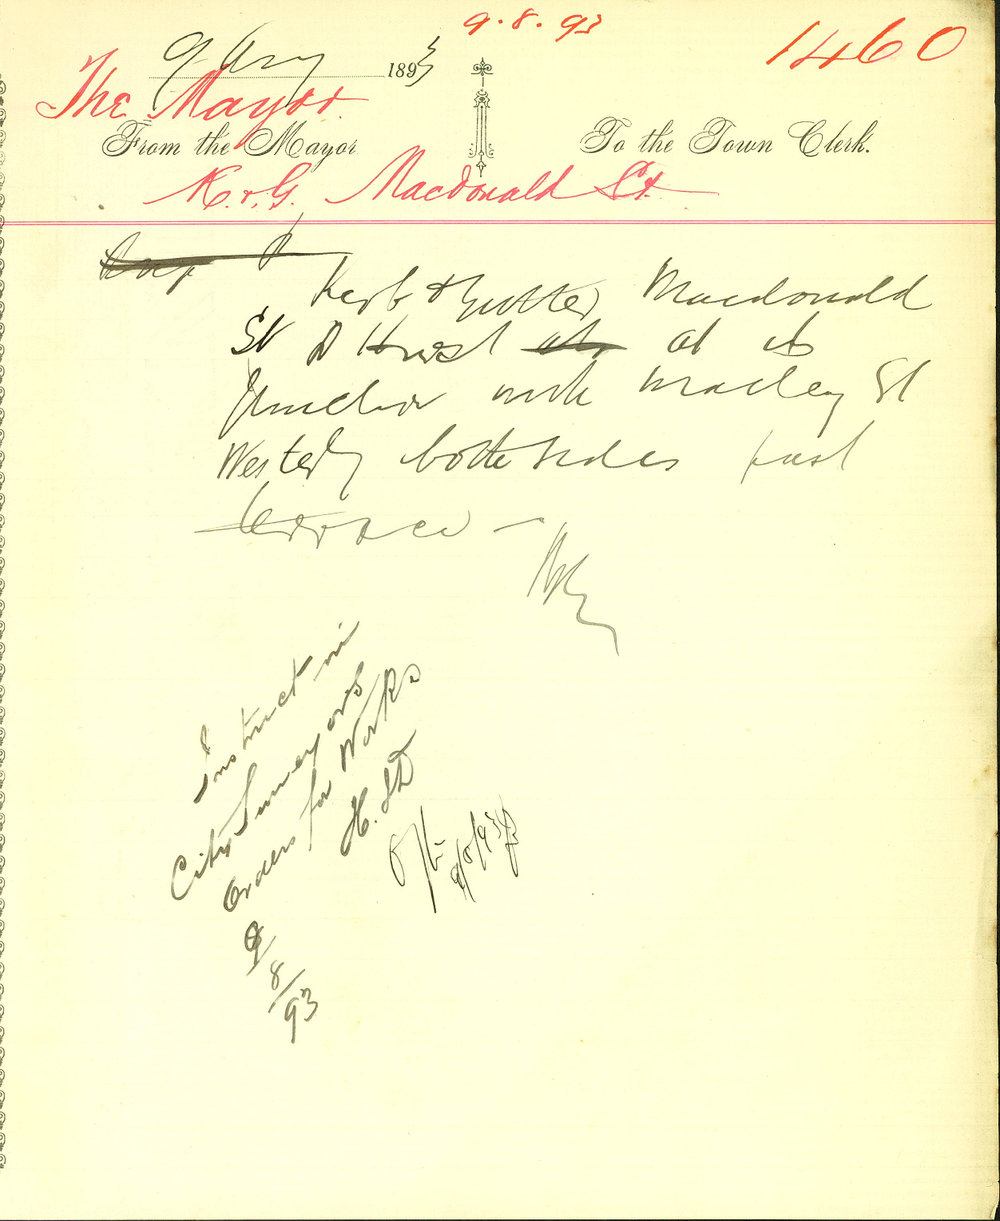 9.8.93
1460
9 Aug 1893
The Mayor
From the Mayor
To the Town Clerk.
K. & G. Macdonald St.
Kerb & Gutter Macdonald
St at its
Junction with Macley St
Westerly both sides past
terrace –
Instruct in
City Surveyors
Orders for Works
H.
9/8/93